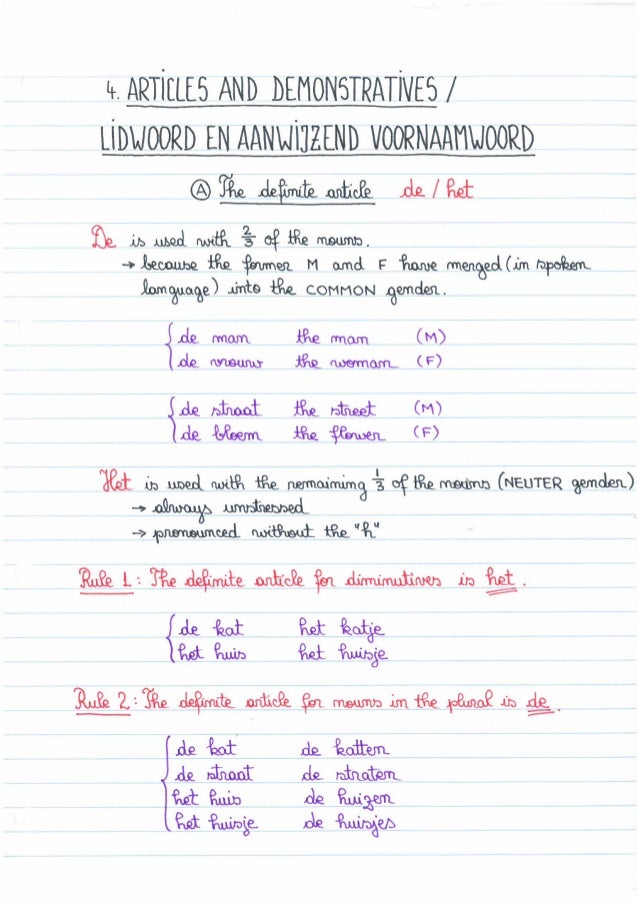 4. ARTICLES AND DEMONSTRATIVES /
LIDWOORD EN AANWIJZEND VOORNAAMWOORD
Ⓐ The definite article de / het
De is used with 2/3 of the nouns.
→ because the former M and F have merged (in spoken
language) into the COMMON gender.
de man the man (M)
de vrouw the woman (F)
de straat the street (M)
de bloem the flower (F)
Het is used with the remaining 1/3 of the nouns (NEUTER gender)
→ always unstressed
→ pronounced without the "h"
Rule 1 : The definite article for diminutives is het .
de kat het katje
het huis het huisje
Rule 2 : The definite article for nouns in the plural is de .
de kat de katten
de straat de straten
het huis de huizen
het huisje de huisjes